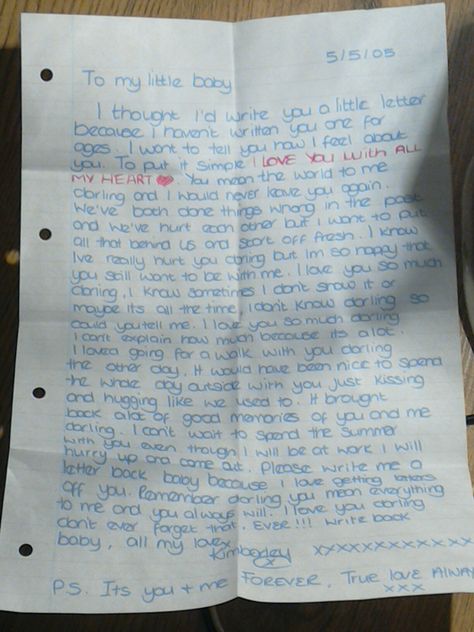 5/5/05
To my little baby
I thought I'd write you a little letter
because I haven't written you one for
ages. I want to tell you how I feel about
you. To put it simple I LOVE YOU WITH ALL
MY HEART ❤. You mean the world to me
darling and I would never leave you again.
We've both done things wrong in the past
and we've hurt each other but I want to put
all that behind us and start off fresh. I know
I've really hurt you darling but Im so happy that
you still want to be with me. I love you so much
darling, I know sometimes I don't show it or
maybe its all the time, I don't know darling so
could you tell me. I love you so much darling
I can't explain how much because its alot.
I loved going for a walk with you darling
the other day. It would have been nice to spend
the whole day outside with you just kissing
and hugging like we used to. It brought
back alot of good memories of you and me
darling. I can't wait to spend the summer
with you even though I will be at work I will
hurry up and come out. Please write me a
letter back baby because I love getting letters
off you. Remember darling you mean everything
to me and you always will. I love you darling
don't ever forget that. EVER!!! Write back
baby, all my love
Kimberley xxxxxxxxxxxx
P.S. Its you + me FOREVER. True love
xxx